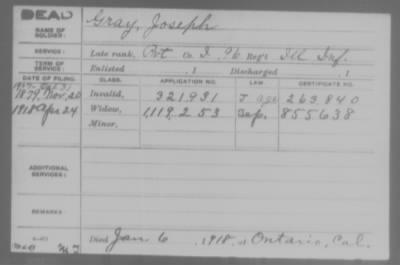 DEAD
NAME OF SOLDIER: Gray, Joseph
SERVICE: Late rank, Pvt Co. I, 96 Reg't Ill Inf.
TERM OF SERVICE: Enlisted , 1 Discharged , 1
DATE OF FILING. CLASS. APPLICATION NO. LAW. CERTIFICATE NO.
1879, Nov, 20 Invalid, 321931 263840
1918 Apr 24 Widow, 1,119,253 855638
Minor,
ADDITIONAL SERVICES:
REMARKS
Died Jan 6, 1918, at Ontario, Cal.